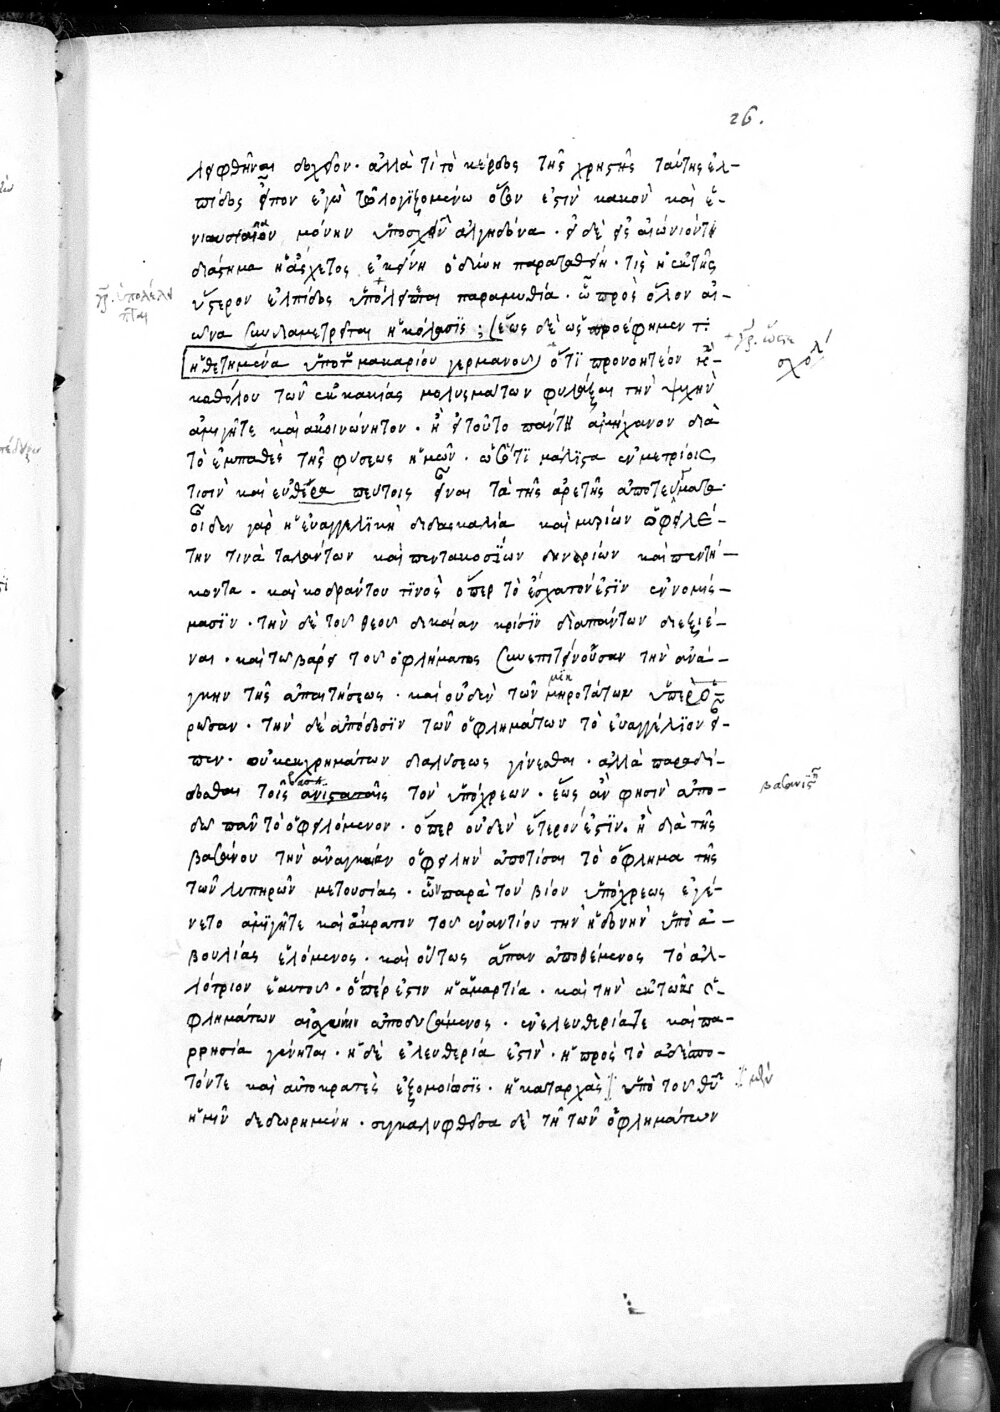 26.
λειφθῆναι δοχεῖον· ἀλλὰ τί τὸ κέρδος τῆς χρηστῆς ταύτης ἐλ-
πίδος εἶπον ἐγὼ τῶ λογιζομένω οἷόν ἐστιν κακὸν καὶ ἐ-
νιαυσιαῖαν μόνην ὑποσχεῖν ἀλγηδόνα· εἰ δὲ εἰς αἰώνιόν τι
διάστημα ἡ ἄσχετος ἐκείνη ὀδύνη παραταθείη· τίς ἡ ἐκ τῆς
ὕστερον ἐλπίδος ὑπολείπεται παραμυθία· ᾧ πρὸς ὅλον αἰ-
γρ. ὑπολέλειπται
ῶνα συνδιαμετρεῖται ἡ κόλασις; (ἕως δὲ ὡς προέφημεν τ:
γρ. ὥσπερ
ἠθετημένα ὑπὸ τοῦ μακαρίου γερμανοῦ) ὅτι προνοητέον ἢ
σχολ
καθόλου τῶν ἐκ κακίας μολυσμάτων φυλάξαι τὴν ψυχὴν
ἀμιγῆ τε καὶ ἀκοινώνητον· ἢ εἰ τοῦτο παντῆ ἀμήχανον διὰ
τὸ ἐμπαθὲς τῆς φύσεως ἡμῶν· ὡς ὅτι μάλιστα ἐν μετρίοις
τισὶν καὶ εὐθεράπευτοις εἶναι τὰ τῆς ἀρετῆς ἀποτεύγματα·
οἶδεν γὰρ ἡ εὐαγγελικὴ διδασκαλία καὶ μυρίων ὀφειλέ-
την τινὰ ταλάντων καὶ πεντακοσίων δηναρίων καὶ πεντή-
κοντα· καὶ κοδράντου τινὸς ὅπερ τὸ ἔσχατόν ἐστιν ἐν νομίσ-
μασιν· τὴν δὲ τοῦ θεοῦ δικαίαν κρίσιν διαπάντων διεξιέ-
ναι· καὶ τῶ βάρει τοῦ ὀφλήματος συνεπιτείνουσαν τὴν ἀνά-
γκην τῆς ἀπαιτήσεως· καὶ οὐδὲν τῶν μηροτάτων ὑπερο-
μικ
ρῶσαν· τὴν δὲ ἀπόδοσιν τῶν ὀφλημάτων τὸ εὐαγγέλιον εἶ-
πεν· οὐκ ἐκ χρημάτων διαλύσεως γίνεσθαι· ἀλλὰ παραδί-
δοσθαι τοῖς ἀνισταταῖς τὸν ὑπόχρεων· ἕως ἂν φησὶν ἀπο-
βασανιστ
δῶ πᾶν τὸ ὀφειλόμενον· ὅπερ οὐδὲν ἕτερον ἐστιν. ἢ διὰ τῆς
βασάνου τὴν ἀναγκαίαν ὀφειλὴν ἀποτίσαι τὸ ὄφλημα τῆς
τῶν λυπηρῶν μετουσίας· ὧν παρὰ τὸν βίον ὑπόχρεως ἐγέ-
νετο ἀμιγῆ τε καὶ ἄκρατον τοῦ ἐναντίου τὴν ἡδονὴν ὑπὸ ἀ-
βουλίας ἑλόμενος· καὶ οὕτως ἅπαν ἀποθέμενος τὸ ἀλ-
λότριον ἑαυτοῦ· ὅπέρ ἐστιν ἡ ἁμαρτία· καὶ τὴν ἐκ τῶν ὀ-
φλημάτων αἰσχύνην ἀποδυσάμενος· ἐν ἐλευθερίᾳ τε καὶ πα-
ρρησία γένηται· ἡ δὲ ἐλευθερία ἐστὶν· ἡ πρὸς τὸ ἀδέσπο-
τόν τε καὶ αὐτοκρατὲς ἐξομοίωσις· ἡ καταρχὰς ὑπὸ τοῦ θεοῦ
μὲν
ἡμῖν δεδωρημένη· συγκαλυφθεῖσα δὲ τῆ τῶν ὀφλημάτων